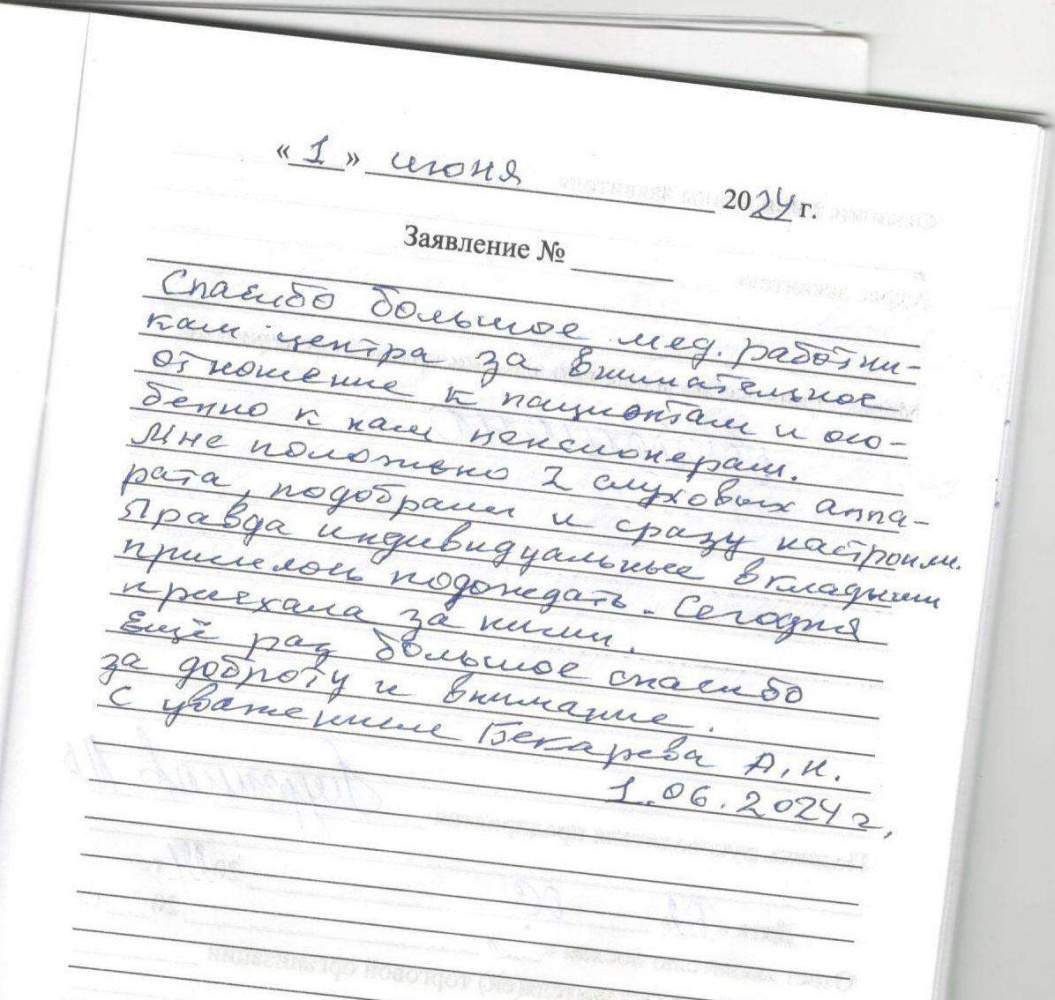 « 1 » июня 2024 г.
Заявление №
Спасибо большое мед. работни-
кам центра за внимательное
отношение к пациентам и осо-
бенно к нам пенсионерам.
Мне положено 2 слуховых аппа-
рата, подобрали и сразу настроили.
Правда индивидуальные вкладыши
пришлось подождать. Сегодня
приехала за ними.
Ещё раз большое спасибо
за доброту и внимание.
С уважением Бекарева А.Н.
1.06.2024 г.